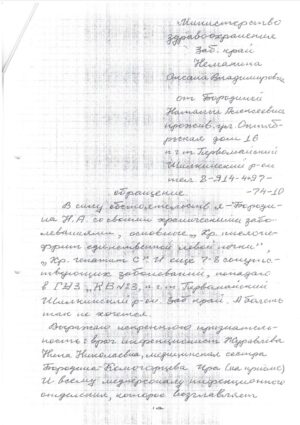 Министерство
здравоохранения
Заб. край
Немакина
Оксана Владимировна
от Бородиной
Натальи Алексеевны
прожив. ул. Октяб-
рьская дом 16
п.г.т. Первомайский
Шилкинский р-он
тел 8-914-497-
обращение -74-10
В силу обстоятельств я - Бороди-
на Н.А. со своими хроническими забо-
леваниями, основное „Хр. пиелоне-
фрит единственной левой почки",
„Хр. гепатит С" И ещё 7-8 сопутс-
твующих заболеваний, попадаю
в ГУЗ „КБ№3, п.г.т. Первомайский
Шилкинский р-он. Заб. край. А болеть
так не хочется.
Выражаю искреннюю признатель-
ность: врач инфекционист Журавлёва
Нина Николаевна, медицинская сестра
Бородина Комогорцева Ира (на приёме)
И всему медперсоналу инфекционного
отделения, которое возглавляет